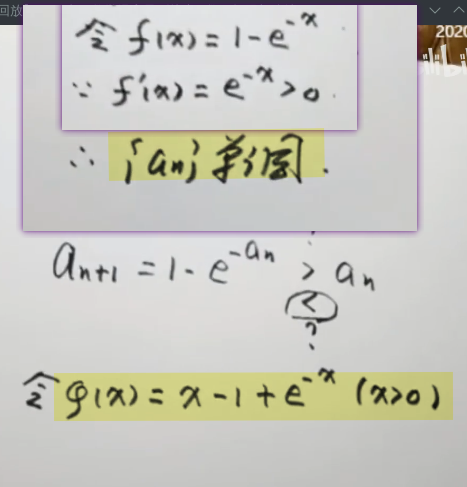 回放
2020
令 f(x) = 1 - e^{-x}
∵ f'(x) = e^{-x} > 0.
∴ {a_n} 单调.
a_{n+1} = 1 - e^{-a_n} > a_n
<
?
令 φ(x) = x - 1 + e^{-x} (x>0)